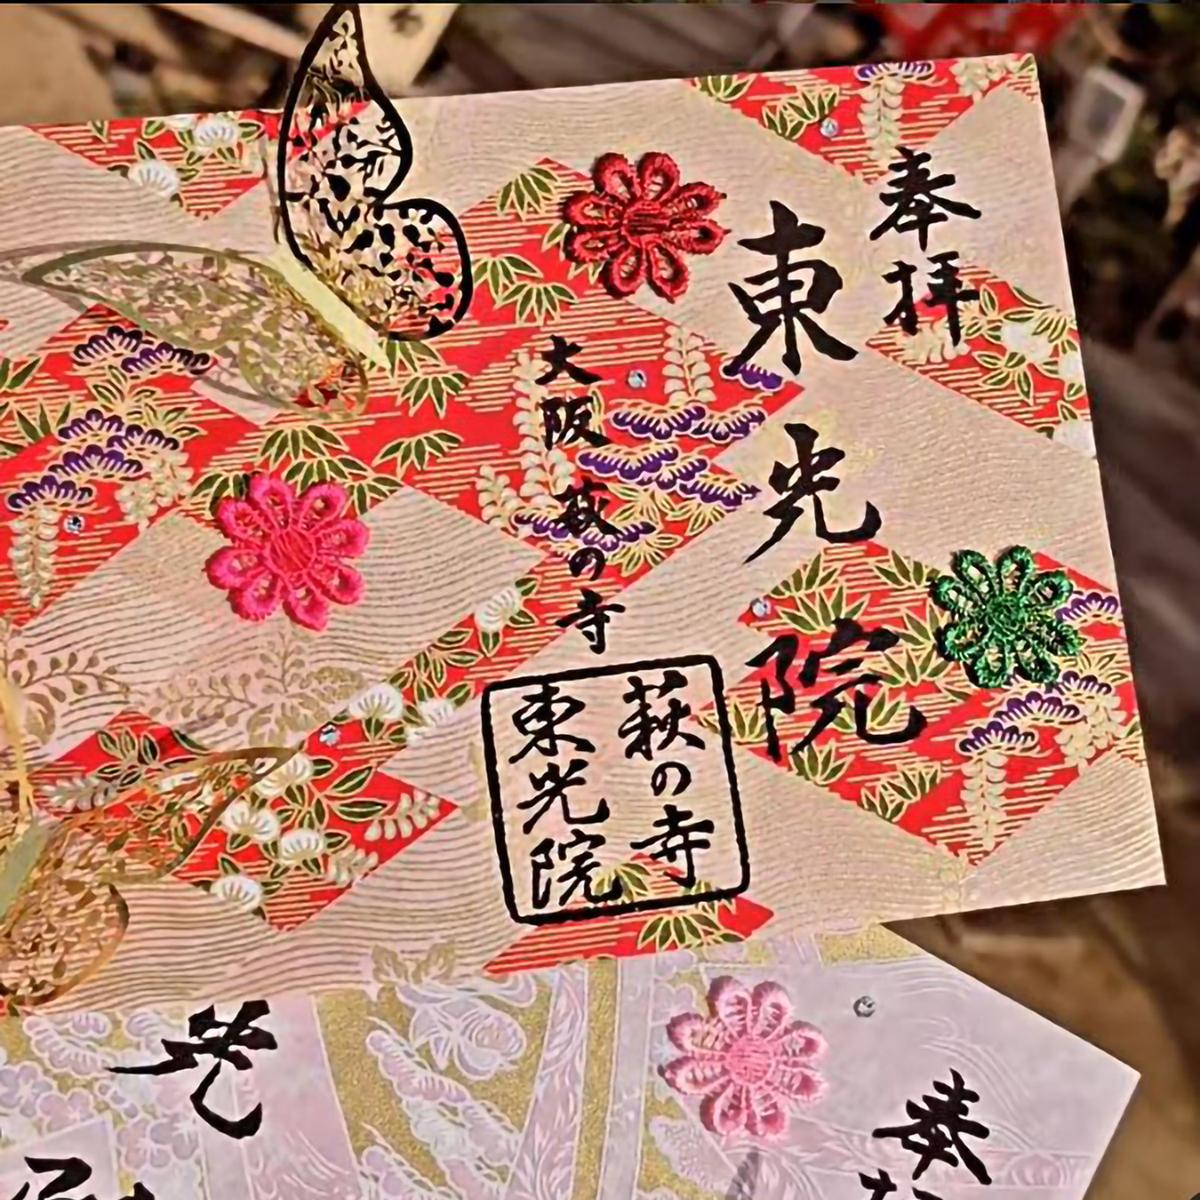 奉拝
東光院
大阪萩の寺
萩の寺
東光院
奉
光